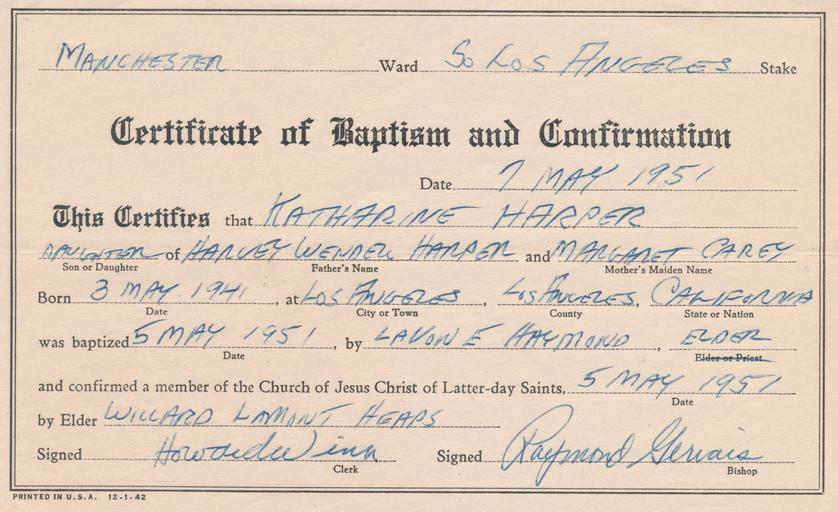 MANCHESTER Ward So LOS ANGELES Stake
Certificate of Baptism and Confirmation
Date 7 MAY 1951
This Certifies that KATHARINE HARPER
DAUGHTER of HARVEY WENDELL HARPER and MARGARET CAREY
Son or Daughter Father's Name Mother's Maiden Name
Born 3 MAY 1941, at LOS ANGELES, LOS ANGELES, CALIFORNIA
Date City or Town County State or Nation
was baptized 5 MAY 1951, by LAVON E HAYMOND, ELDER
Date Elder or Priest
and confirmed a member of the Church of Jesus Christ of Latter-day Saints, 5 MAY 1951
Date
by Elder WILLARD LAMONT HEAPS
Signed Signed Raymond Gervais
Clerk Bishop
PRINTED IN U.S.A. 12-1-42